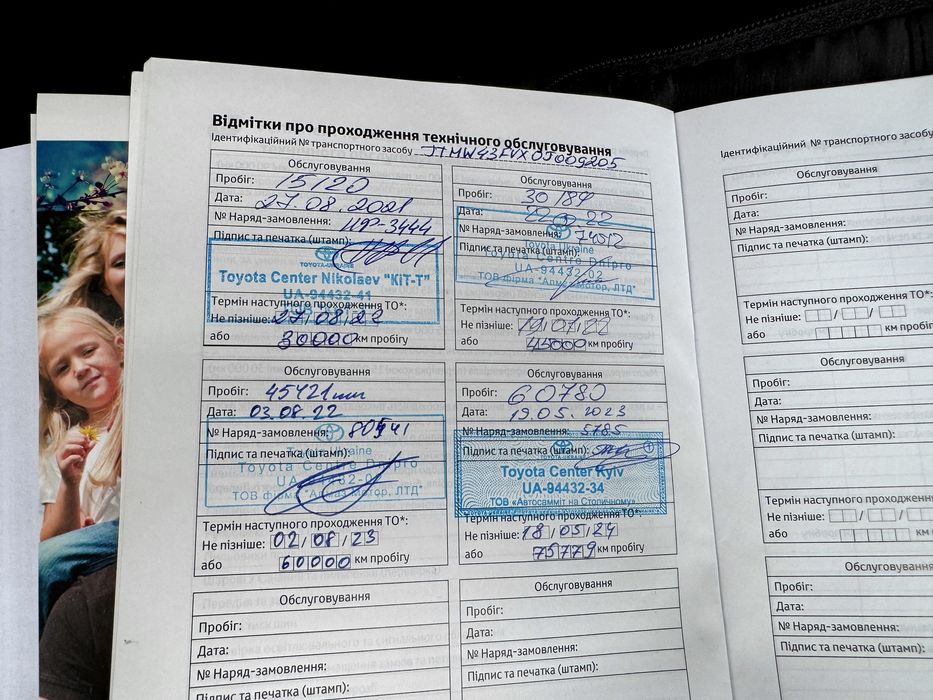 Відмітки про проходження технічного обслуговування
Ідентифікаційний № транспортного засобу JTMW43FVX0J009205
Обслуговування
Пробіг: 15120
Дата: 27.08.2021
№ Наряд-замовлення: НР-3444
Підпис та печатка (штамп):
TOYOTA-UKRAINE
Toyota Center Nikolaev "КіТ-Т"
UA-94432-41
Термін наступного проходження ТО*:
Не пізніше: 27/08/22
або 30000 км пробігу
Обслуговування
Пробіг: 30184
Дата: 22
№ Наряд-замовлення: 74512
Підпис та печатка (штамп):
Toyota Ukraine
Toyota Centre Dnipro
UA-94432-02
ТОВ фірма "Алмаз Мотор, ЛТД"
Термін наступного проходження ТО*:
Не пізніше: 19/07/22
або 45000 км пробігу
Обслуговування
Пробіг: 45421
Дата: 03.08.22
№ Наряд-замовлення: 80541
Підпис та печатка (штамп):
Toyota Ukraine
Toyota Centre Dnipro
ТОВ фірма "Алмаз Мотор, ЛТД"
Термін наступного проходження ТО*:
Не пізніше: 02/08/23
або 60000 км пробігу
Обслуговування
Пробіг: 60780
Дата: 19.05.2023
№ Наряд-замовлення: 5785
Підпис та печатка (штамп):
Toyota Center Kyiv
UA-94432-34
ТОВ «Автосамміт на Столичному»
Термін наступного проходження ТО*:
Не пізніше: 18/05/24
або 75779 км пробігу
Обслуговування
Пробіг:
Дата:
№ Наряд-замовлення:
Підпис та печатка (штамп):
Обслуговування
Пробіг:
Дата:
№ Наряд-замовлення:
Підпис та печатка (штамп):
Ідентифікаційний № транспортного засобу
Обслуговування
Пробіг:
Дата:
№ Наряд-замовлення:
Підпис та печатка (штамп):
Термін наступного проходження ТО*:
Не пізніше: / /
або км пробігу
Обслуговування
Пробіг:
Дата:
№ Наряд-замовлення:
Підпис та печатка (штамп):
Термін наступного проходження
Не пізніше: / /
або км
Обслуговування
Пробіг:
Дата:
№ Наряд-замовлення:
Підпис та печатка (штамп):